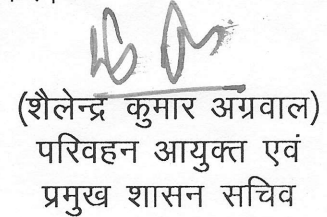 (शैलेन्द्र कुमार अग्रवाल)
परिवहन आयुक्त एवं
प्रमुख शासन सचिव